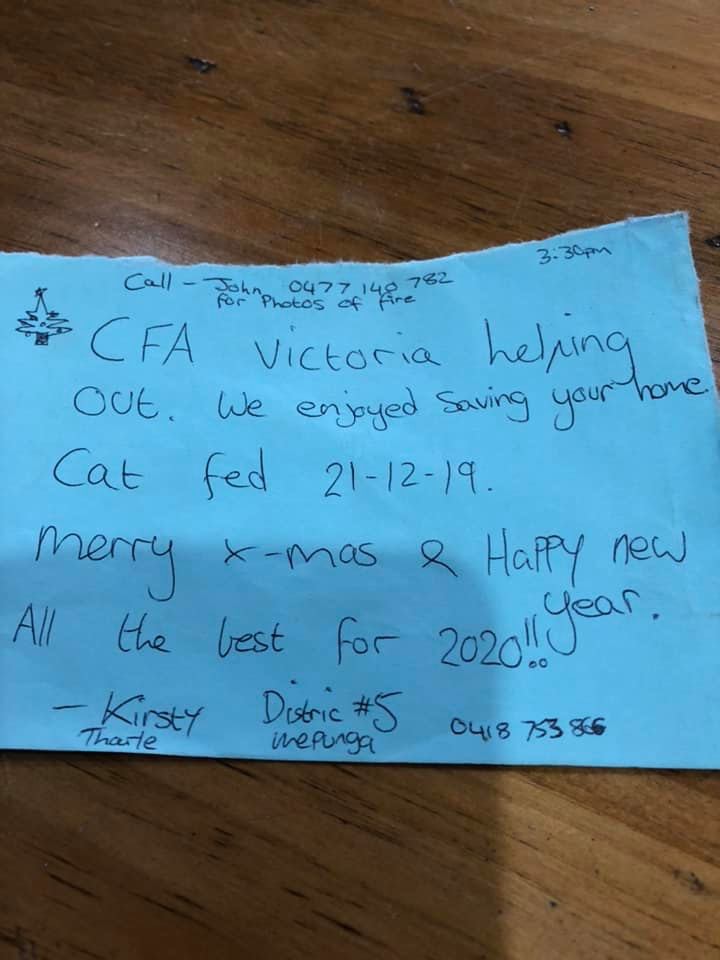 3:30pm
Call - John 0477 140 782
for Photos of fire
CFA Victoria helping
out. We enjoyed Saving your home.
Cat fed 21-12-19.
Merry x-mas & Happy new
year.
All the best for 2020!!
- Kirsty Distric #5
Tharle inepunga
0418 753 866